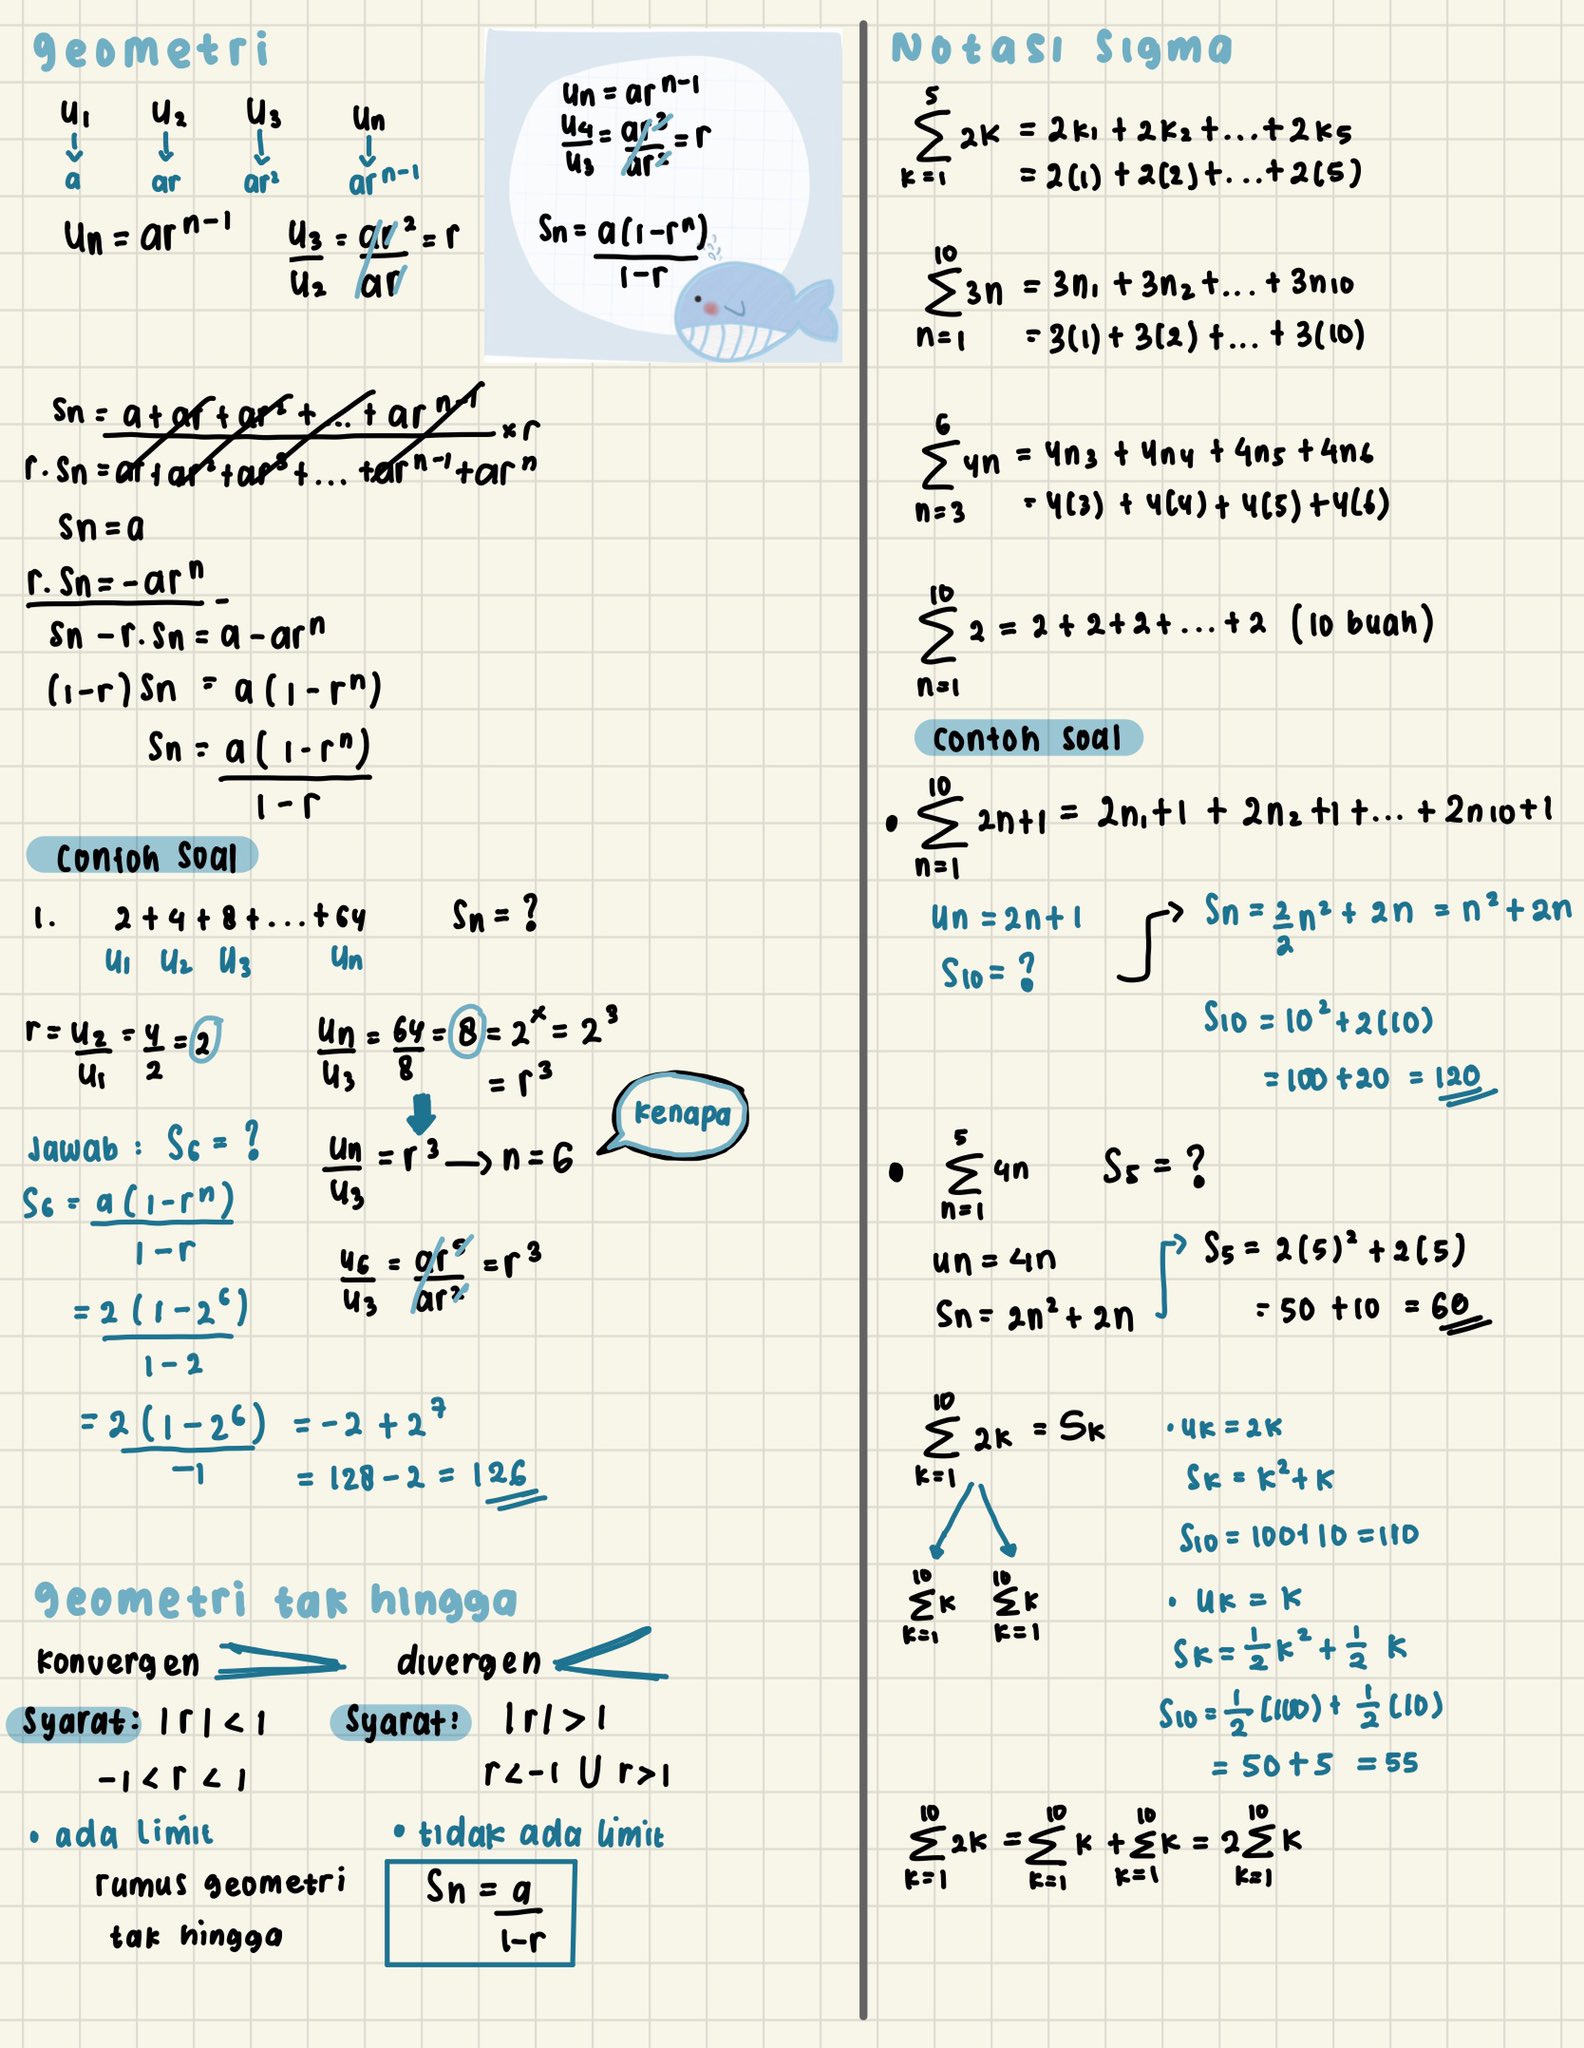 geometri
U₁ U₂ U₃ Un
a ar ar² arⁿ⁻¹
Un = arⁿ⁻¹
U₃/U₂ = ar²/ar = r
Un = arⁿ⁻¹
U₄/U₃ = ar³/ar² = r
Sn = a(1-rⁿ)/1-r
Sn = a + ar + ar² + ... + arⁿ⁻¹ × r
r. Sn = ar + ar² + ar³ + ... + arⁿ⁻¹ + arⁿ
Sn = a
r. Sn = -arⁿ -
Sn - r. Sn = a - arⁿ
(1-r) Sn = a (1 - rⁿ)
Sn = a (1 - rⁿ)/1 - r
Contoh Soal
1. 2 + 4 + 8 + ... + 64 Sn = ?
U₁ U₂ U₃ Un
r = U₂/U₁ = 4/2 = 2
Un/U₃ = 64/8 = 8 = 2ˣ = 2³
= r³
kenapa
Un/U₃ = r³ → n = 6
U₆/U₃ = ar⁵/ar² = r³
Jawab : S₆ = ?
S₆ = a (1 - rⁿ)/1 - r
= 2 (1 - 2⁶)/1 - 2
= 2 (1 - 2⁶)/-1 = -2 + 2⁷
= 128 - 2 = 126
geometri tak hingga
konvergen divergen
Syarat: |r| < 1 Syarat: |r| > 1
-1 < r < 1 r < -1 U r > 1
• ada limit • tidak ada limit
rumus geometri
tak hingga
Sn = a/1-r
Notasi Sigma
5∑k=1 2k = 2k₁ + 2k₂ + ... + 2k₅
= 2(1) + 2(2) + ... + 2(5)
10∑n=1 3n = 3n₁ + 3n₂ + ... + 3n₁₀
= 3(1) + 3(2) + ... + 3(10)
6∑n=3 4n = 4n₃ + 4n₄ + 4n₅ + 4n₆
= 4(3) + 4(4) + 4(5) + 4(6)
10∑n=1 2 = 2 + 2 + 2 + ... + 2 (10 buah)
Contoh Soal
• 10∑n=1 2n+1 = 2n₁+1 + 2n₂+1 + ... + 2n₁₀+1
Un = 2n+1
S₁₀ = ?
→ Sn = 2/2 n² + 2n = n² + 2n
S₁₀ = 10² + 2(10)
= 100 + 20 = 120
• 5∑n=1 4n S₅ = ?
Un = 4n
Sn = 2n² + 2n
→ S₅ = 2(5)² + 2(5)
= 50 + 10 = 60
10∑k=1 2k = Sk
10∑k=1 k 10∑k=1 k
• Uk = 2k
Sk = k² + k
S₁₀ = 100 + 10 = 110
• Uk = k
Sk = 1/2 k² + 1/2 k
S₁₀ = 1/2 (100) + 1/2 (10)
= 50 + 5 = 55
10∑k=1 2k = 10∑k=1 k + 10∑k=1 k = 2 10∑k=1 k